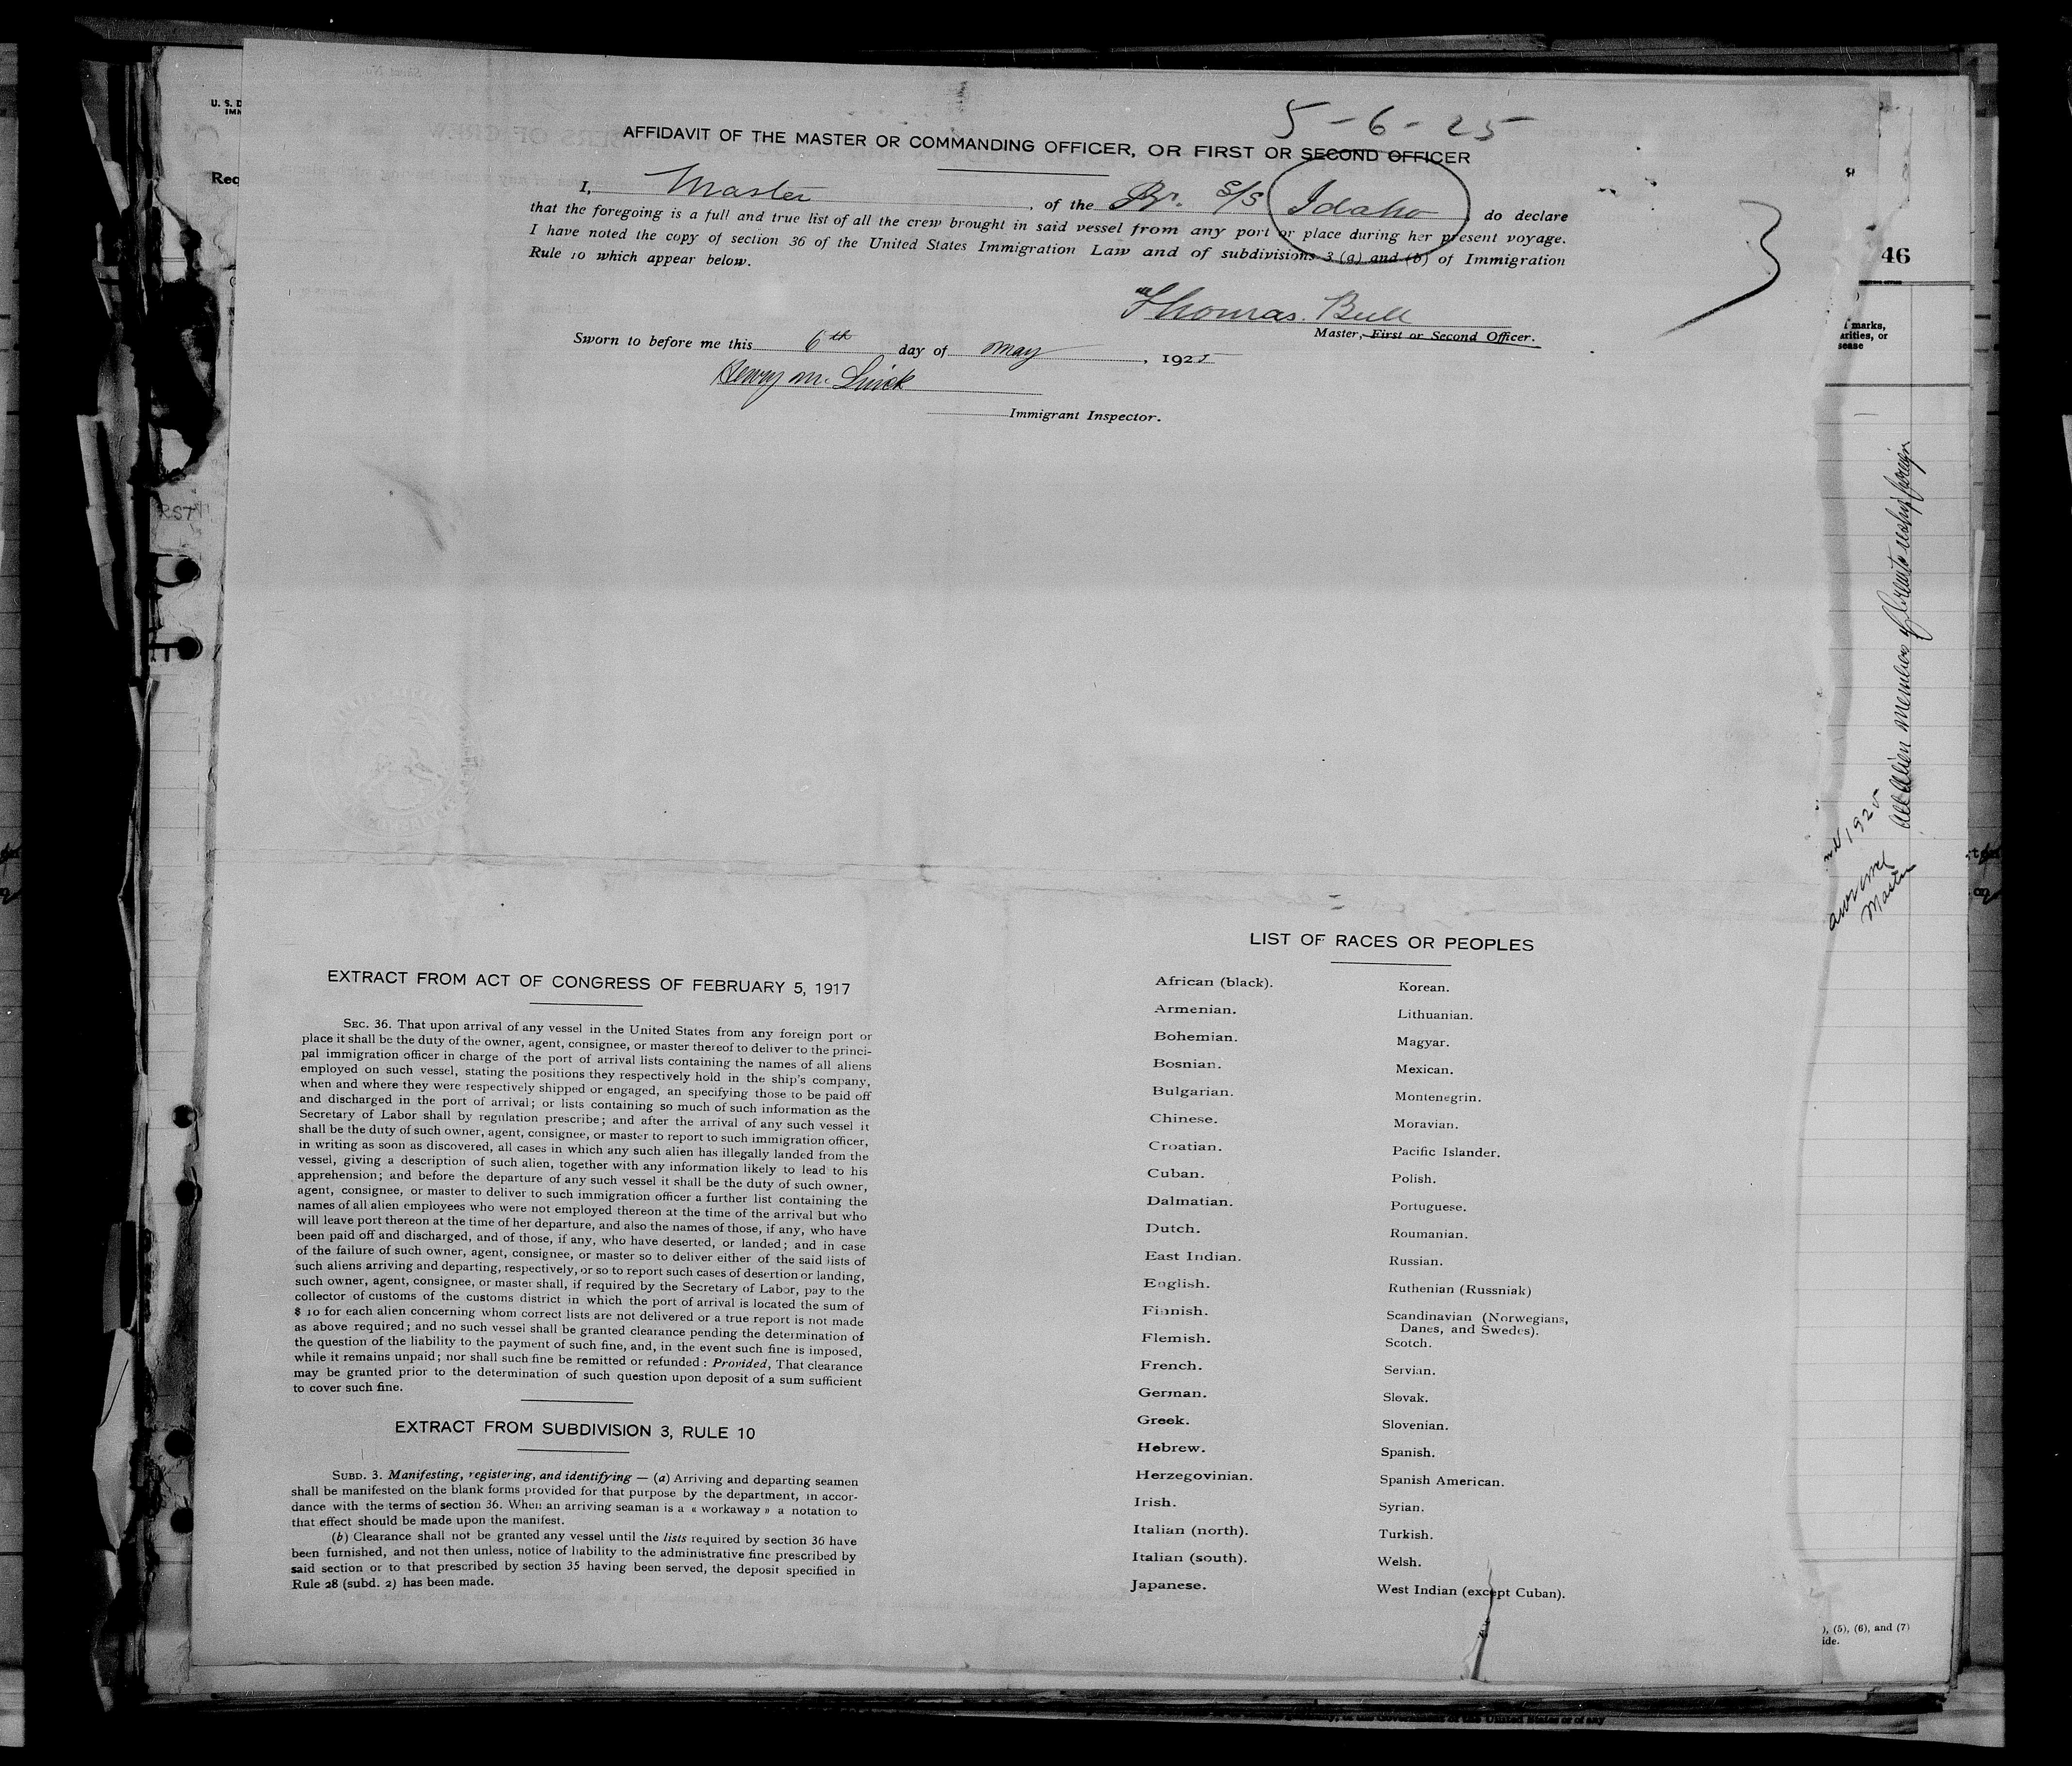 5-6-25
AFFIDAVIT OF THE MASTER OR COMMANDING OFFICER, OR FIRST OR SECOND OFFICER
I, Master, of the Br. S/S Idaho, do declare
that the foregoing is a full and true list of all the crew brought in said vessel from any port or place during her present voyage.
I have noted the copy of section 36 of the United States Immigration Law and of subdivisions 3 (a) and (b) of Immigration
Rule 10 which appear below.
Thomas Bull
Master, First or Second Officer.
Sworn to before me this 6th day of May, 1925
Henry M.
Immigrant Inspector.
EXTRACT FROM ACT OF CONGRESS OF FEBRUARY 5, 1917
SEC. 36. That upon arrival of any vessel in the United States from any foreign port or
place it shall be the duty of the owner, agent, consignee, or master thereof to deliver to the princi-
pal immigration officer in charge of the port of arrival lists containing the names of all aliens
employed on such vessel, stating the positions they respectively hold in the ship's company,
when and where they were respectively shipped or engaged, an specifying those to be paid off
and discharged in the port of arrival; or lists containing so much of such information as the
Secretary of Labor shall by regulation prescribe; and after the arrival of any such vessel it
shall be the duty of such owner, agent, consignee, or master to report to such immigration officer,
in writing as soon as discovered, all cases in which any such alien has illegally landed from the
vessel, giving a description of such alien, together with any information likely to lead to his
apprehension; and before the departure of any such vessel it shall be the duty of such owner,
agent, consignee, or master to deliver to such immigration officer a further list containing the
names of all alien employees who were not employed thereon at the time of the arrival but who
will leave port thereon at the time of her departure, and also the names of those, if any, who have
been paid off and discharged, and of those, if any, who have deserted, or landed; and in case
of the failure of such owner, agent, consignee, or master so to deliver either of the said lists of
such aliens arriving and departing, respectively, or so to report such cases of desertion or landing,
such owner, agent, consignee, or master shall, if required by the Secretary of Labor, pay to the
collector of customs of the customs district in which the port of arrival is located the sum of
$ 10 for each alien concerning whom correct lists are not delivered or a true report is not made
as above required; and no such vessel shall be granted clearance pending the determination of
the question of the liability to the payment of such fine, and, in the event such fine is imposed,
while it remains unpaid; nor shall such fine be remitted or refunded : Provided, That clearance
may be granted prior to the determination of such question upon deposit of a sum sufficient
to cover such fine.
EXTRACT FROM SUBDIVISION 3, RULE 10
SUBD. 3. Manifesting, registering, and identifying — (a) Arriving and departing seamen
shall be manifested on the blank forms provided for that purpose by the department, in accor-
dance with the terms of section 36. When an arriving seaman is a « workaway » a notation to
that effect should be made upon the manifest.
(b) Clearance shall not be granted any vessel until the lists required by section 36 have
been furnished, and not then unless, notice of liability to the administrative fine prescribed by
said section or to that prescribed by section 35 having been served, the deposit specified in
Rule 28 (subd. 2) has been made.
LIST OF RACES OR PEOPLES
African (black).
Armenian.
Bohemian.
Bosnian.
Bulgarian.
Chinese.
Croatian.
Cuban.
Dalmatian.
Dutch.
East Indian.
English.
Finnish.
Flemish.
French.
German.
Greek.
Hebrew.
Herzegovinian.
Irish.
Italian (north).
Italian (south).
Japanese.
Korean.
Lithuanian.
Magyar.
Mexican.
Montenegrin.
Moravian.
Pacific Islander.
Polish.
Portuguese.
Roumanian.
Russian.
Ruthenian (Russniak)
Scandinavian (Norwegians,
Danes, and Swedes).
Scotch.
Servian.
Slovak.
Slovenian.
Spanish.
Spanish American.
Syrian.
Turkish.
Welsh.
West Indian (except Cuban).
U. S. D
IMM
Rec
46
marks,
arities, or
sease
All Alien members of Crew to reship foreign
1925
Master
), (5), (6), and (7)
ide.